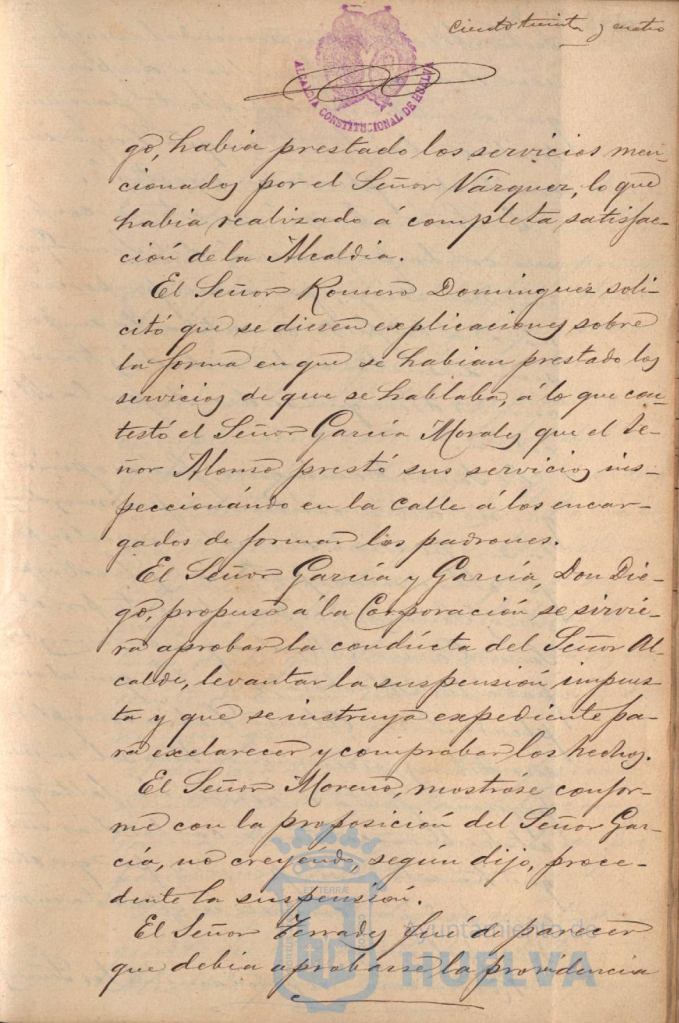 Ciento treinta y cuatro
ALCALDIA CONSTITUCIONAL DE HUELVA
go, habia prestado los servicios men-
cionados por el Señor Vázquez, lo que
habia realizado á completa satisfac-
ción de la Alcaldia.
El Señor Romero Dominguez soli-
citó que se diesen explicaciones sobre
la forma en que se habian prestado los
servicios de que se hablaba, á lo que con-
testó el Señor García Morales que el Se-
ñor Alonso prestó sus servicios ins-
peccionando en la calle á los encar-
gados de formar los padrones.
El Señor García y García, Don Die-
go, propuso á la Corporación se sirvie-
ra aprobar la conducta del Señor Al-
calde, levantar la suspensión impues-
ta y que se instruya expediente pa-
ra esclarecer y comprobar los hechos.
El Señor Moreno, mostróse confor-
me con la proposición del Señor Gar-
cía, no creyendo, según dijo, proce-
dente la suspensión.
El Señor Terrades fué de parecer
que debia aprobarse la providencia
Ayuntamiento de
HUELVA